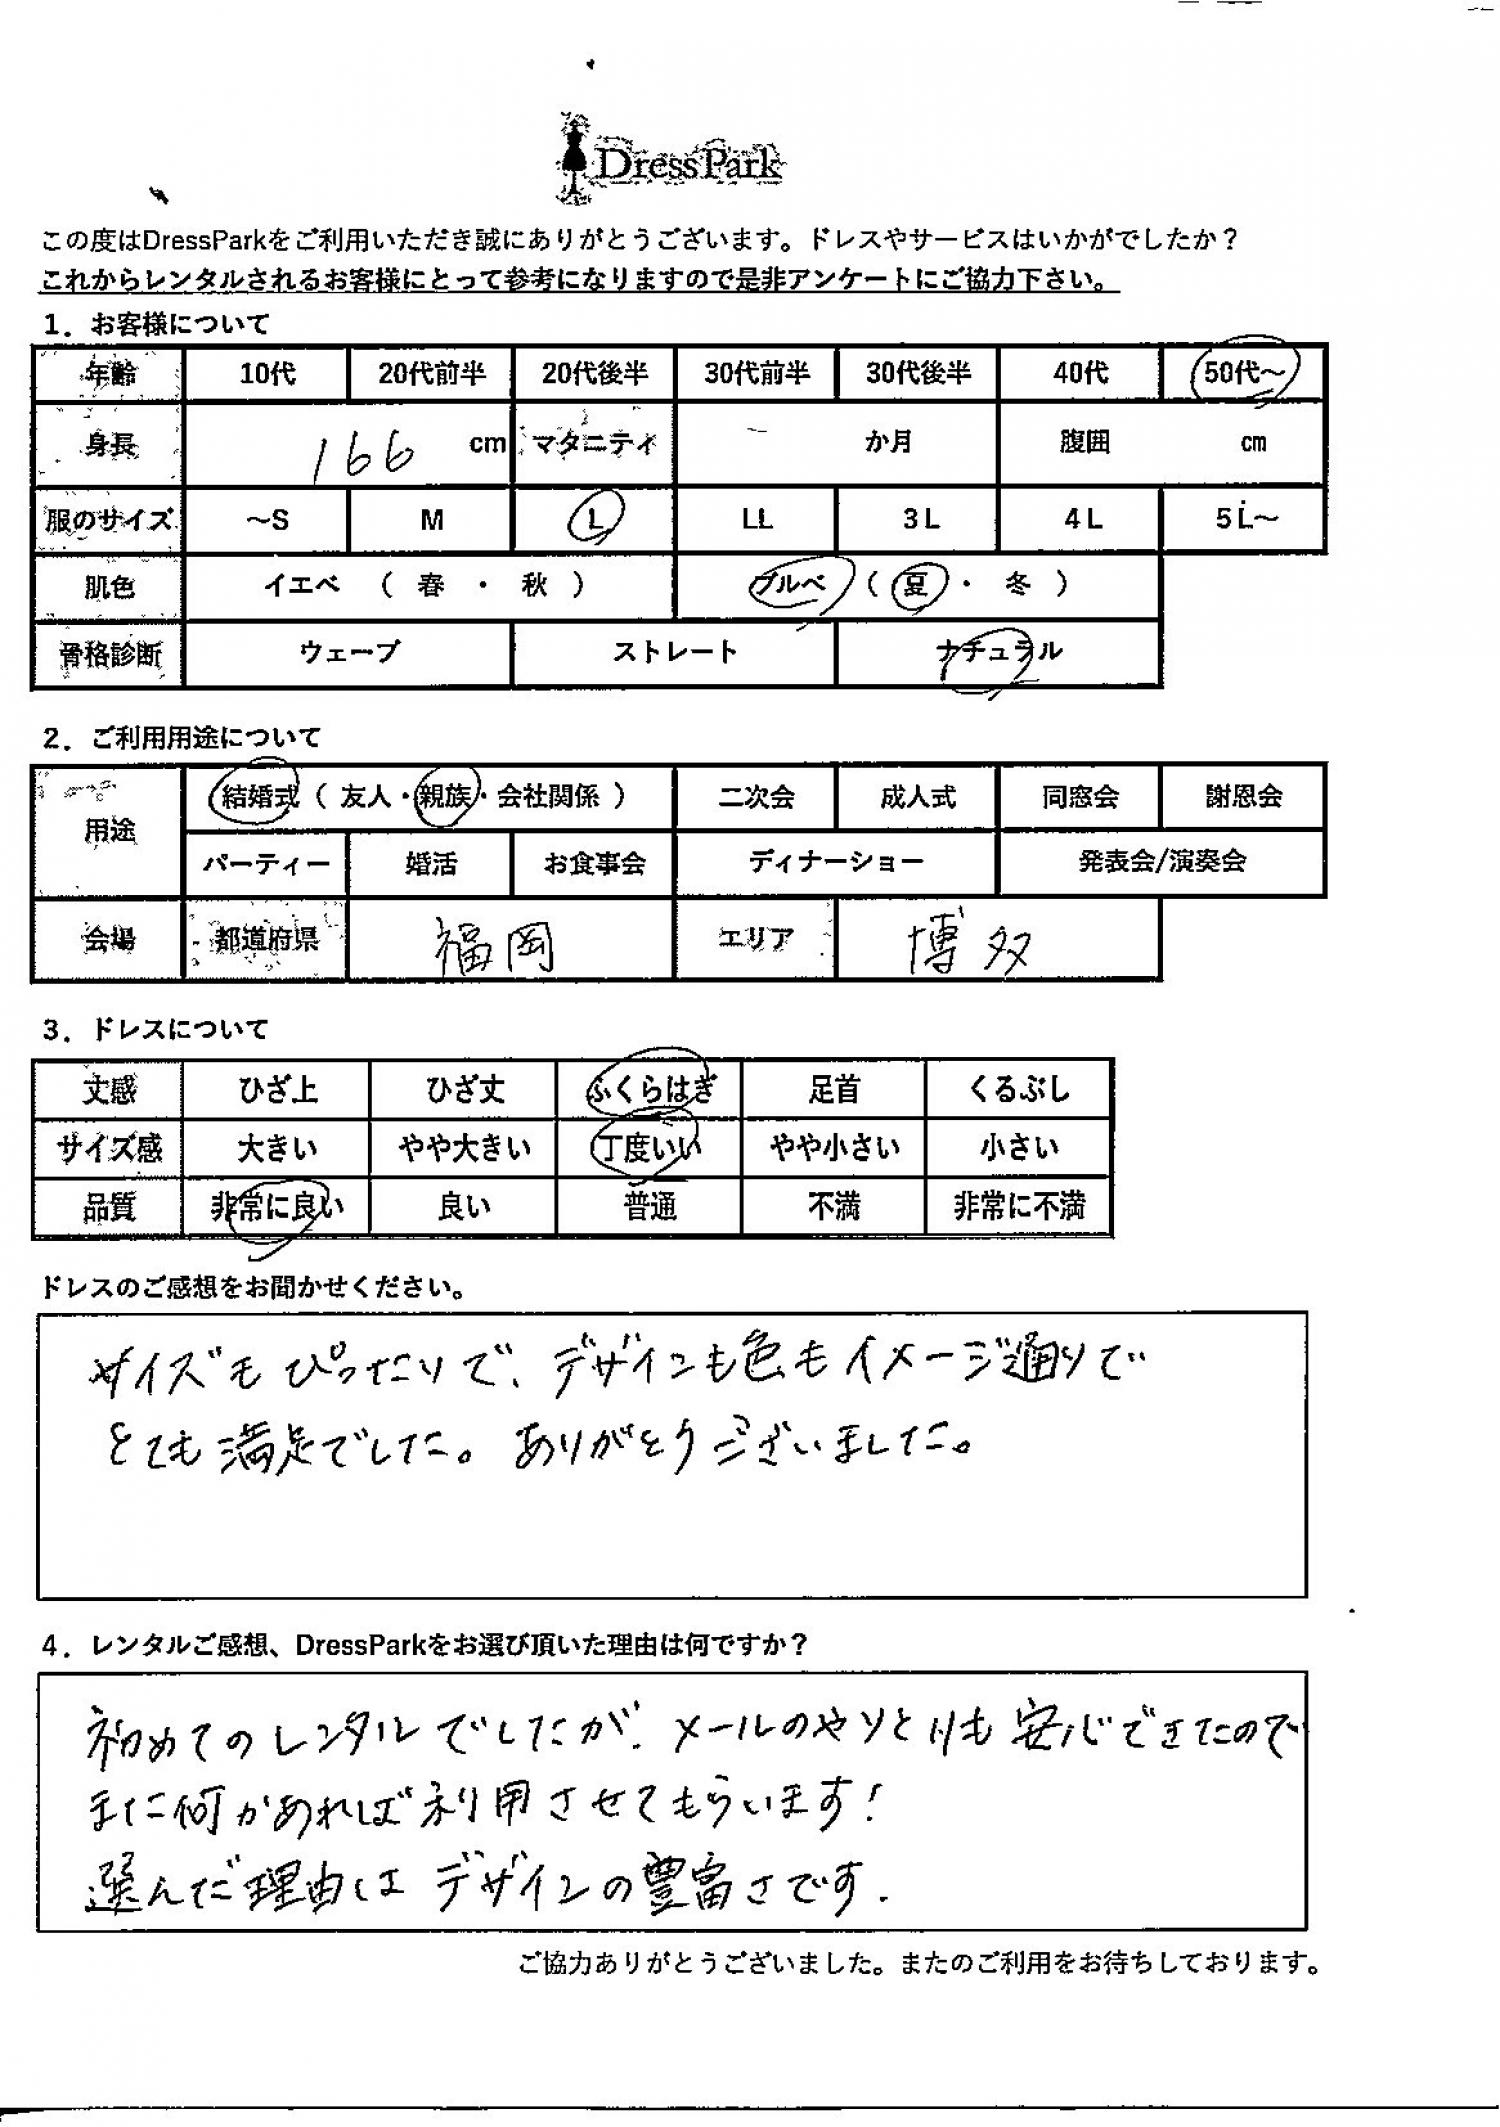 DressPark
この度はDressParkをご利用いただき誠にありがとうございます。ドレスやサービスはいかがでしたか？
これからレンタルされるお客様にとって参考になりますので是非アンケートにご協力下さい。
1．お客様について
年齢 10代 20代前半 20代後半 30代前半 30代後半 40代 50代～
身長 166 cm マタニティ か月 腹囲 cm
服のサイズ ～S M L LL 3L 4L 5L～
肌色 イエベ （ 春 ・ 秋 ） ブルベ （ 夏 ・ 冬 ）
骨格診断 ウェーブ ストレート ナチュラル
2．ご利用用途について
用途 結婚式（ 友人・親族・会社関係 ） 二次会 成人式 同窓会 謝恩会
パーティー 婚活 お食事会 ディナーショー 発表会/演奏会
会場 都道府県 福岡 エリア 博多
3．ドレスについて
丈感 ひざ上 ひざ丈 ふくらはぎ 足首 くるぶし
サイズ感 大きい やや大きい 丁度いい やや小さい 小さい
品質 非常に良い 良い 普通 不満 非常に不満
ドレスのご感想をお聞かせください。
サイズもぴったりで、デザインも色もイメージ通りで
とても満足でした。ありがとうございました。
4．レンタルご感想、DressParkをお選び頂いた理由は何ですか？
初めてのレンタルでしたが、メールのやりとりも安心できたので
また何かあれば利用させてもらいます！
選んだ理由はデザインの豊富さです.
ご協力ありがとうございました。またのご利用をお待ちしております。